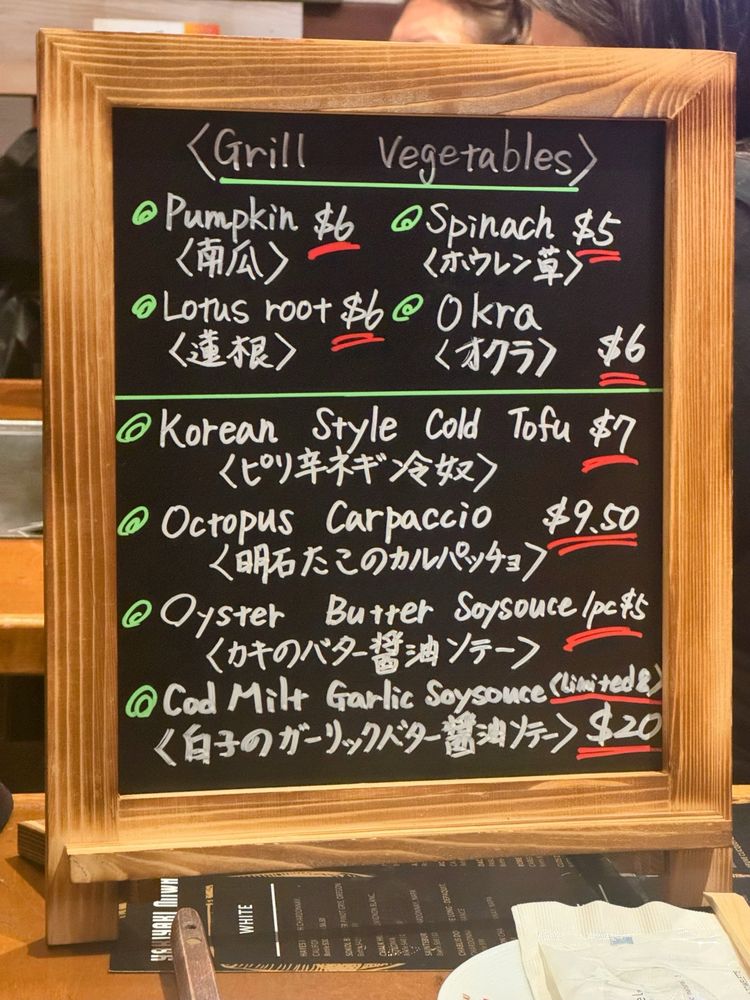 〈Grill Vegetables〉
Pumpkin $6
〈南瓜〉
Spinach $5
〈ホウレン草〉
Lotus root $6
〈蓮根〉
Okra
〈オクラ〉 $6
Korean Style Cold Tofu $7
〈ピリ辛ネギン冷奴〉
Octopus Carpaccio $9.50
〈明石たこのカルパッチョ〉
Oyster Butter Soysouce 1pc $5
〈カキのバター醤油ソテー〉
Cod Milt Garlic Soysouce (Limited 8)
〈白子のガーリックバター醤油ソテー〉 $20
WHITE